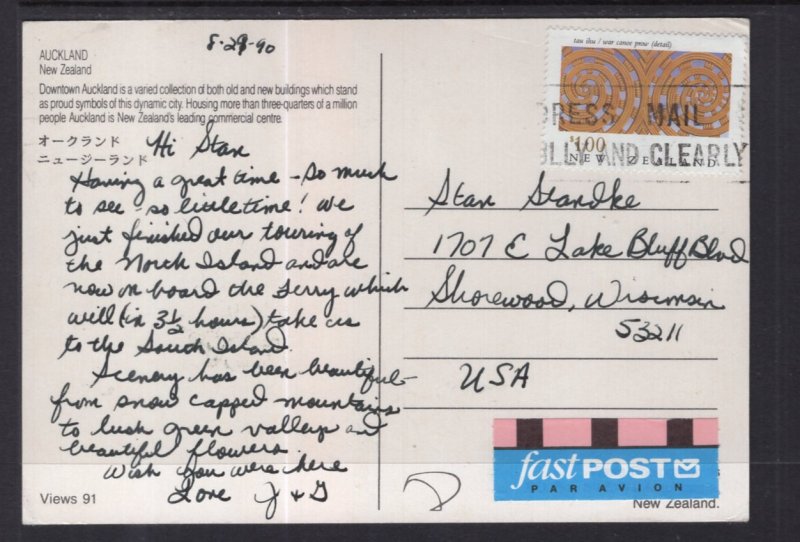 8-29-90
AUCKLAND
New Zealand
Downtown Auckland is a varied collection of both old and new buildings which stand
as proud symbols of this dynamic city. Housing more than three-quarters of a million
people Auckland is New Zealand's leading commercial centre.
オークランド
ニュージーランド
Hi Stan
Having a great time - so much
to see - so little time! We
just finished our touring of
the North Island and are
now on board the ferry which
will (in 3½ hours) take us
to the South Island.
Scenery has been beautiful -
from snow capped mountains
to lush green valleys and
beautiful flowers.
Wish you were here
Love J & G
Views 91
tau ihu / war canoe prow (detail)
$1.00
NEW ZEALAND
DRESS MAIL
LLY AND CLEARLY
Stan Standke
1707 E Lake Bluff Blvd
Shorewood, Wisconsin
53211
USA
fastPOST
PAR AVION
New Zealand.